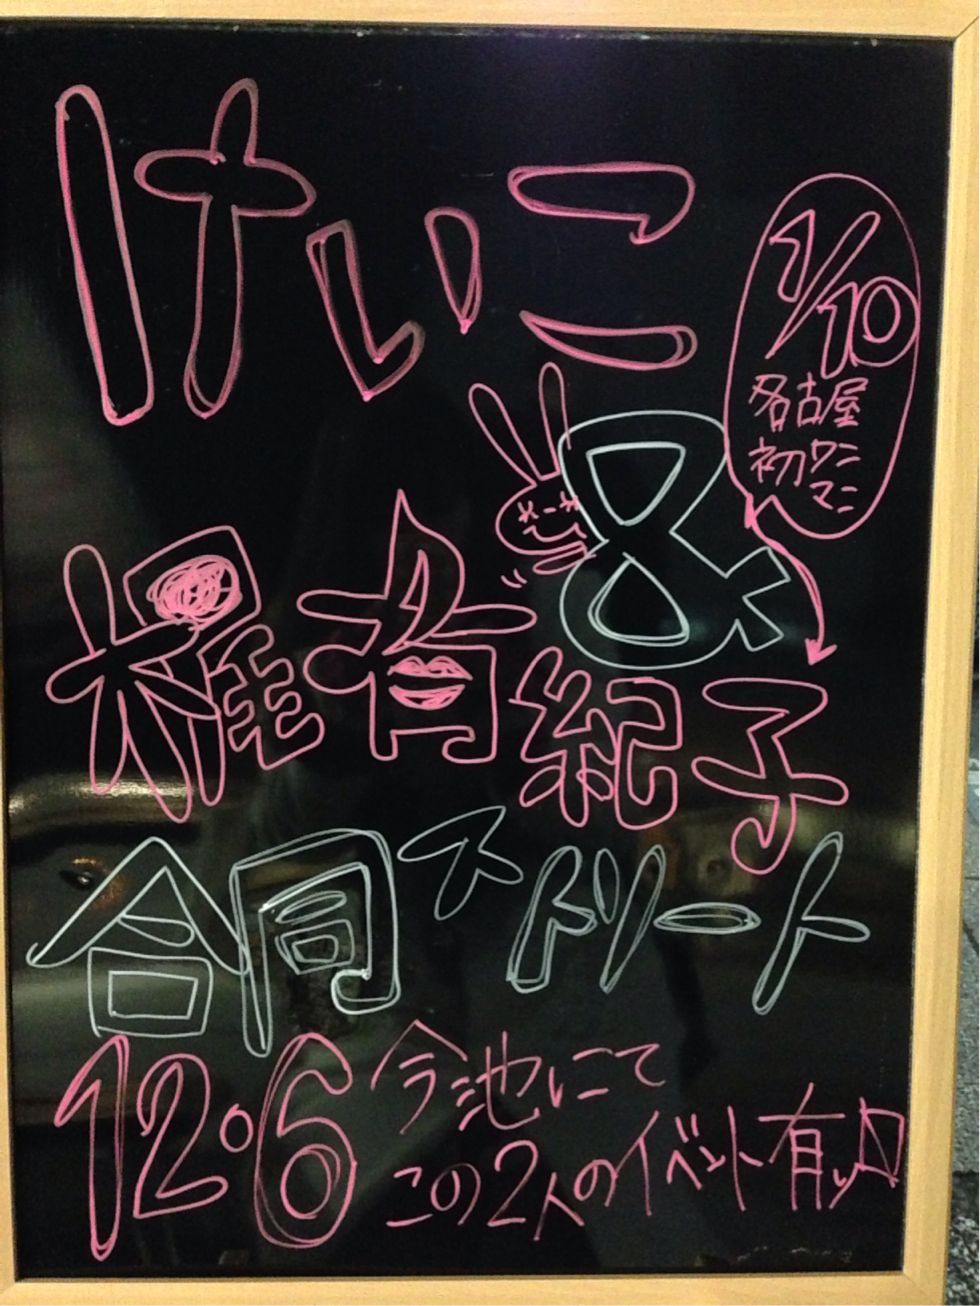 けいこ
1/10
名古屋
初ワン
マン
&
有紀子
合同ストリート
12.6 今池にて
この2人のイベント有り〼